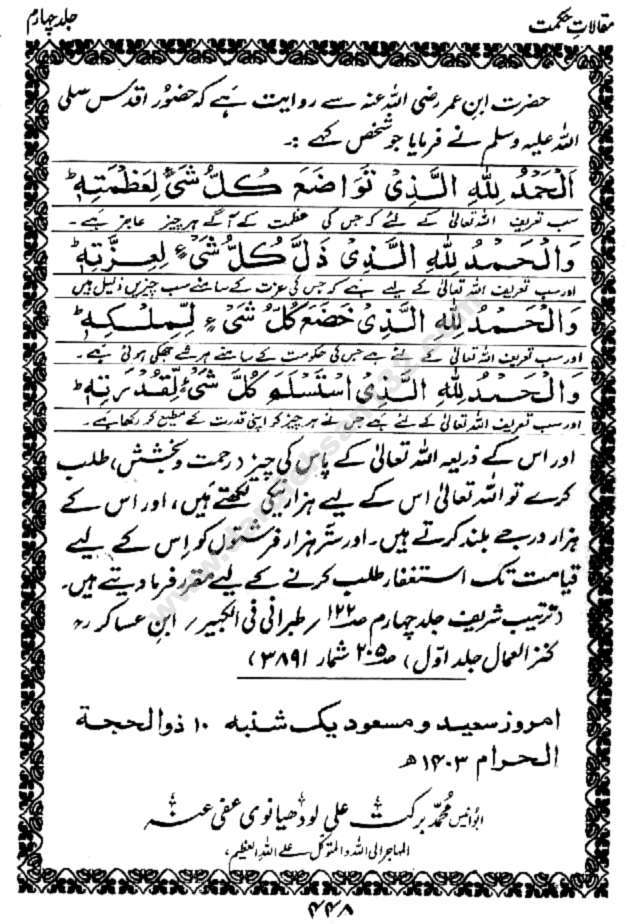 مقالاتِ حکمت
جلد چہارم
حضرت ابنِ عمر رضی اللہ عنہ سے روایت ہے کہ حضورِ اقدس صلی
اللہ علیہ وسلم نے فرمایا جو شخص کہے :۔
اَلْحَمْدُ لِلّٰهِ الَّذِیْ تَوَاضَعَ كُلُّ شَیْءٍ لِعَظَمَتِهٖ ؕ
سب تعریف اللہ تعالیٰ کے لئے کہ جس کی عظمت کے آگے ہر چیز عاجز ہے ۔
وَالْحَمْدُ لِلّٰهِ الَّذِیْ ذَلَّ كُلُّ شَیْءٍ لِعِزَّتِهٖ ؕ
اور سب تعریف اللہ تعالیٰ کے لیے ہے کہ جس کی عزت کے سامنے سب چیزیں ذلیل ہیں
وَالْحَمْدُ لِلّٰهِ الَّذِیْ خَضَعَ كُلُّ شَیْءٍ لِّمِلْكِهٖ ؕ
اور سب تعریف اللہ تعالیٰ کے لئے ہے جس کی حکومت کے سامنے ہر شے جھکی ہوئی ہے ۔
وَالْحَمْدُ لِلّٰهِ الَّذِیْ اسْتَسْلَمَ كُلُّ شَیْءٍ لِّقُدْرَتِهٖ ؕ
اور سب تعریف اللہ تعالیٰ کے لئے ہے جس نے ہر چیز کو اپنی قدرت کے مطیع کر رکھا ہے ۔
اور اس کے ذریعہ اللہ تعالیٰ کے پاس کی چیز (رحمت و بخشش) طلب
کرے تو اللہ تعالیٰ اس کے لیے ہزار نیکی لکھتے ہیں، اور اس کے
ہزار درجے بلند کرتے ہیں۔ اور ستّر ہزار فرشتوں کو اِس کے لیے
قیامت تک استغفار طلب کرنے کے لیے مقرر فرما دیتے ہیں۔
(ترتیب شریف جلد چہارم صـ ۱۲۲ / طبرانی فی الکبیر / ابنِ عساکر رح
کنز العمال جلد اوّل) صـ ۲۰۵ شمار ۳۸۹۱)
امروز سعید و مسعود یک شنبہ ۱۰ ذوالحجۃ
الحرام ۱۴۰۳ھ
ابوانیس محمّد برکت علی لودھیانوی عفی عنہ
المہاجر الی اللہ والمتوکل علے اللہ العظیم ،
۴۴۸